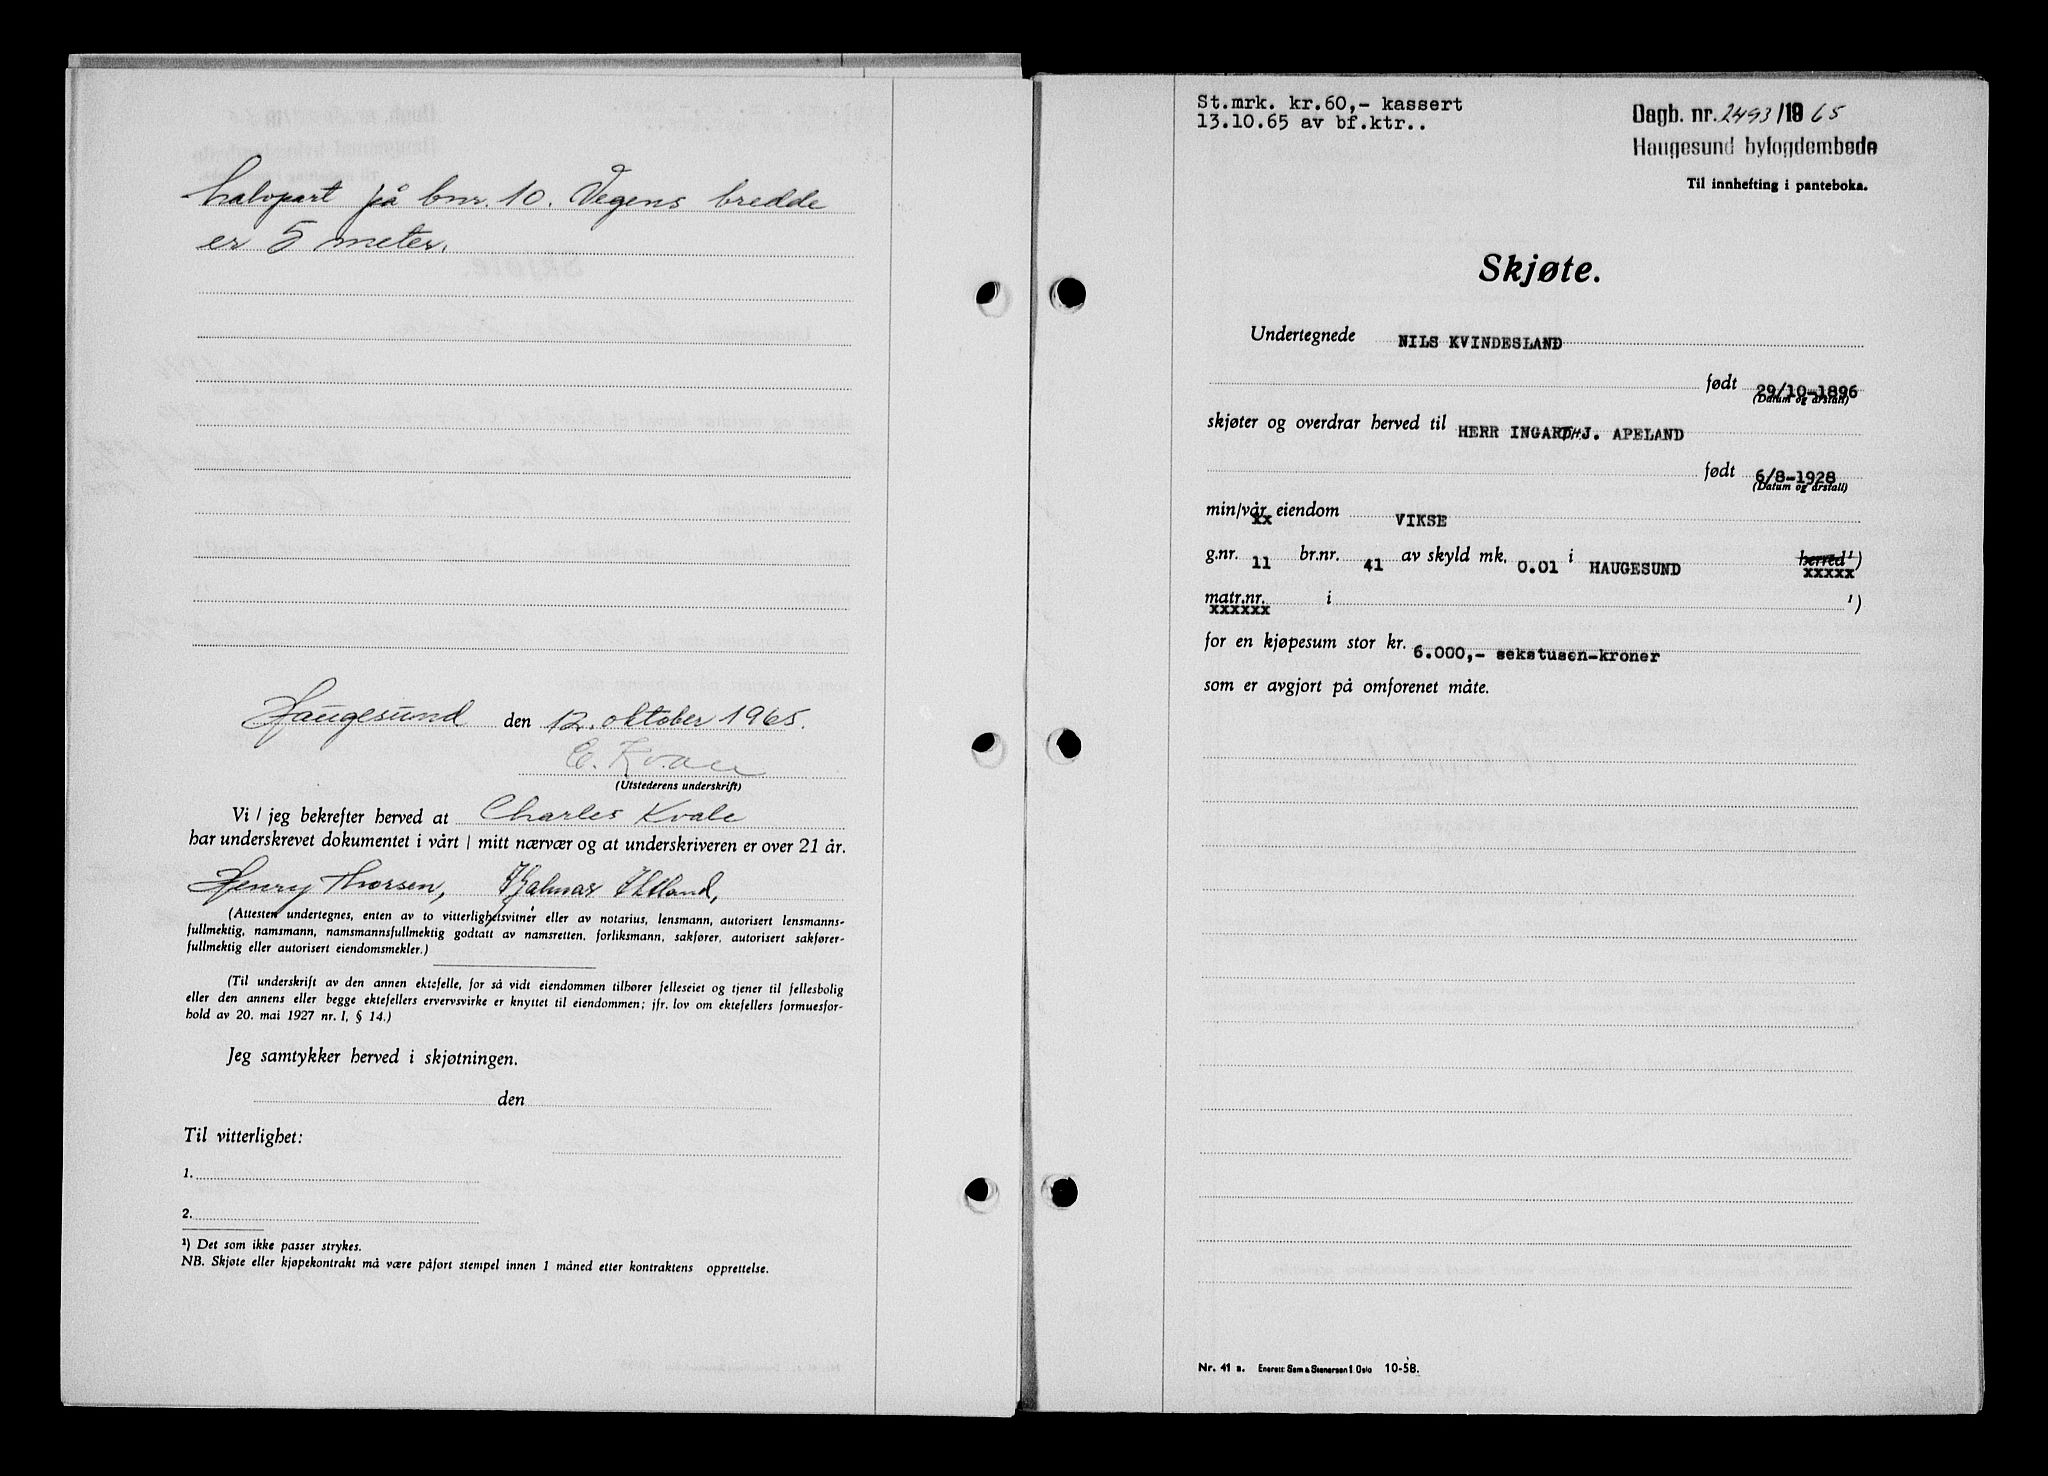 halvpart på bnr. 10. Vegens bredde
er 5 meter.
Haugesund den 12. oktober 1965.
(Utstederens underskrift)
Vi / jeg bekrefter herved at Charles Kvale
har underskrevet dokumentet i vårt / mitt nærvær og at underskriveren er over 21 år.
Henry Thorsen, Hjalmar
(Attesten undertegnes, enten av to vitterlighetsvitner eller av notarius, lensmann, autorisert lensmanns-
fullmektig, namsmann, namsmannsfullmektig godtatt av namsretten, forliksmann, sakfører, autorisert sakfører-
fullmektig eller autorisert eiendomsmekler.)
(Til underskrift av den annen ektefelle, for så vidt eiendommen tilhører felleseiet og tjener til fellesbolig
eller den annens eller begge ektefellers ervervsvirke er knyttet til eiendommen; jfr. lov om ektefellers formuesfor-
hold av 20. mai 1927 nr. 1, § 14.)
Jeg samtykker herved i skjøtningen.
den
Til vitterlighet:
1.
2.
¹) Det som ikke passer strykes.
NB. Skjøte eller kjøpekontrakt må være påført stempel innen 1 måned etter kontraktens opprettelse.
St.mrk. kr.60,- kassert
13.10.65 av bf.ktr..
Dagb. nr. 2493/1965
Haugesund byfogdembede
Til innhefting i panteboka.
Skjøte.
Undertegnede NILS KVINDESLAND
født 29/10-1896
(Datum og årstall)
skjøter og overdrar herved til HERR INGARD J. APELAND
født 6/8-1928
(Datum og årstall)
min/vår eiendom VIKSE
g.nr. 11 br.nr. 41 av skyld mk. 0.01 i HAUGESUND herred¹)
matr.nr. i ¹)
for en kjøpesum stor kr. 6.000,- sekstusen-kroner
som er avgjort på omforenet måte.
Nr. 41 a. Enerett: Sem & Stenersen Oslo 10-58.